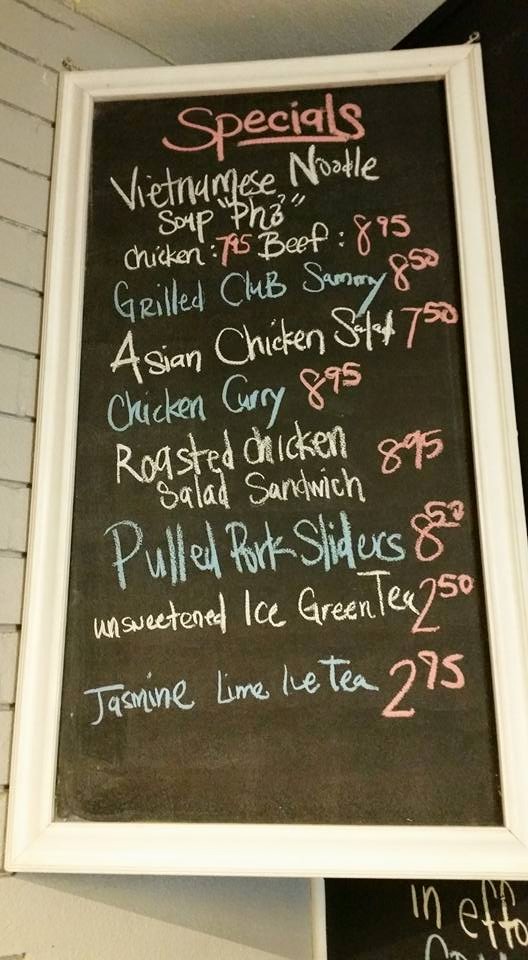 Specials
Vietnamese Noodle
Soup "Phở"
chicken: 7.95 Beef: 8.95
Grilled Club Sammy 8.50
Asian Chicken Salad 7.50
Chicken Curry 8.95
Roasted chicken
Salad Sandwich 8.95
Pulled Pork Sliders 8.50
unsweetened Ice Green Tea 2.50
Jasmine Lime Ice Tea 2.75
in